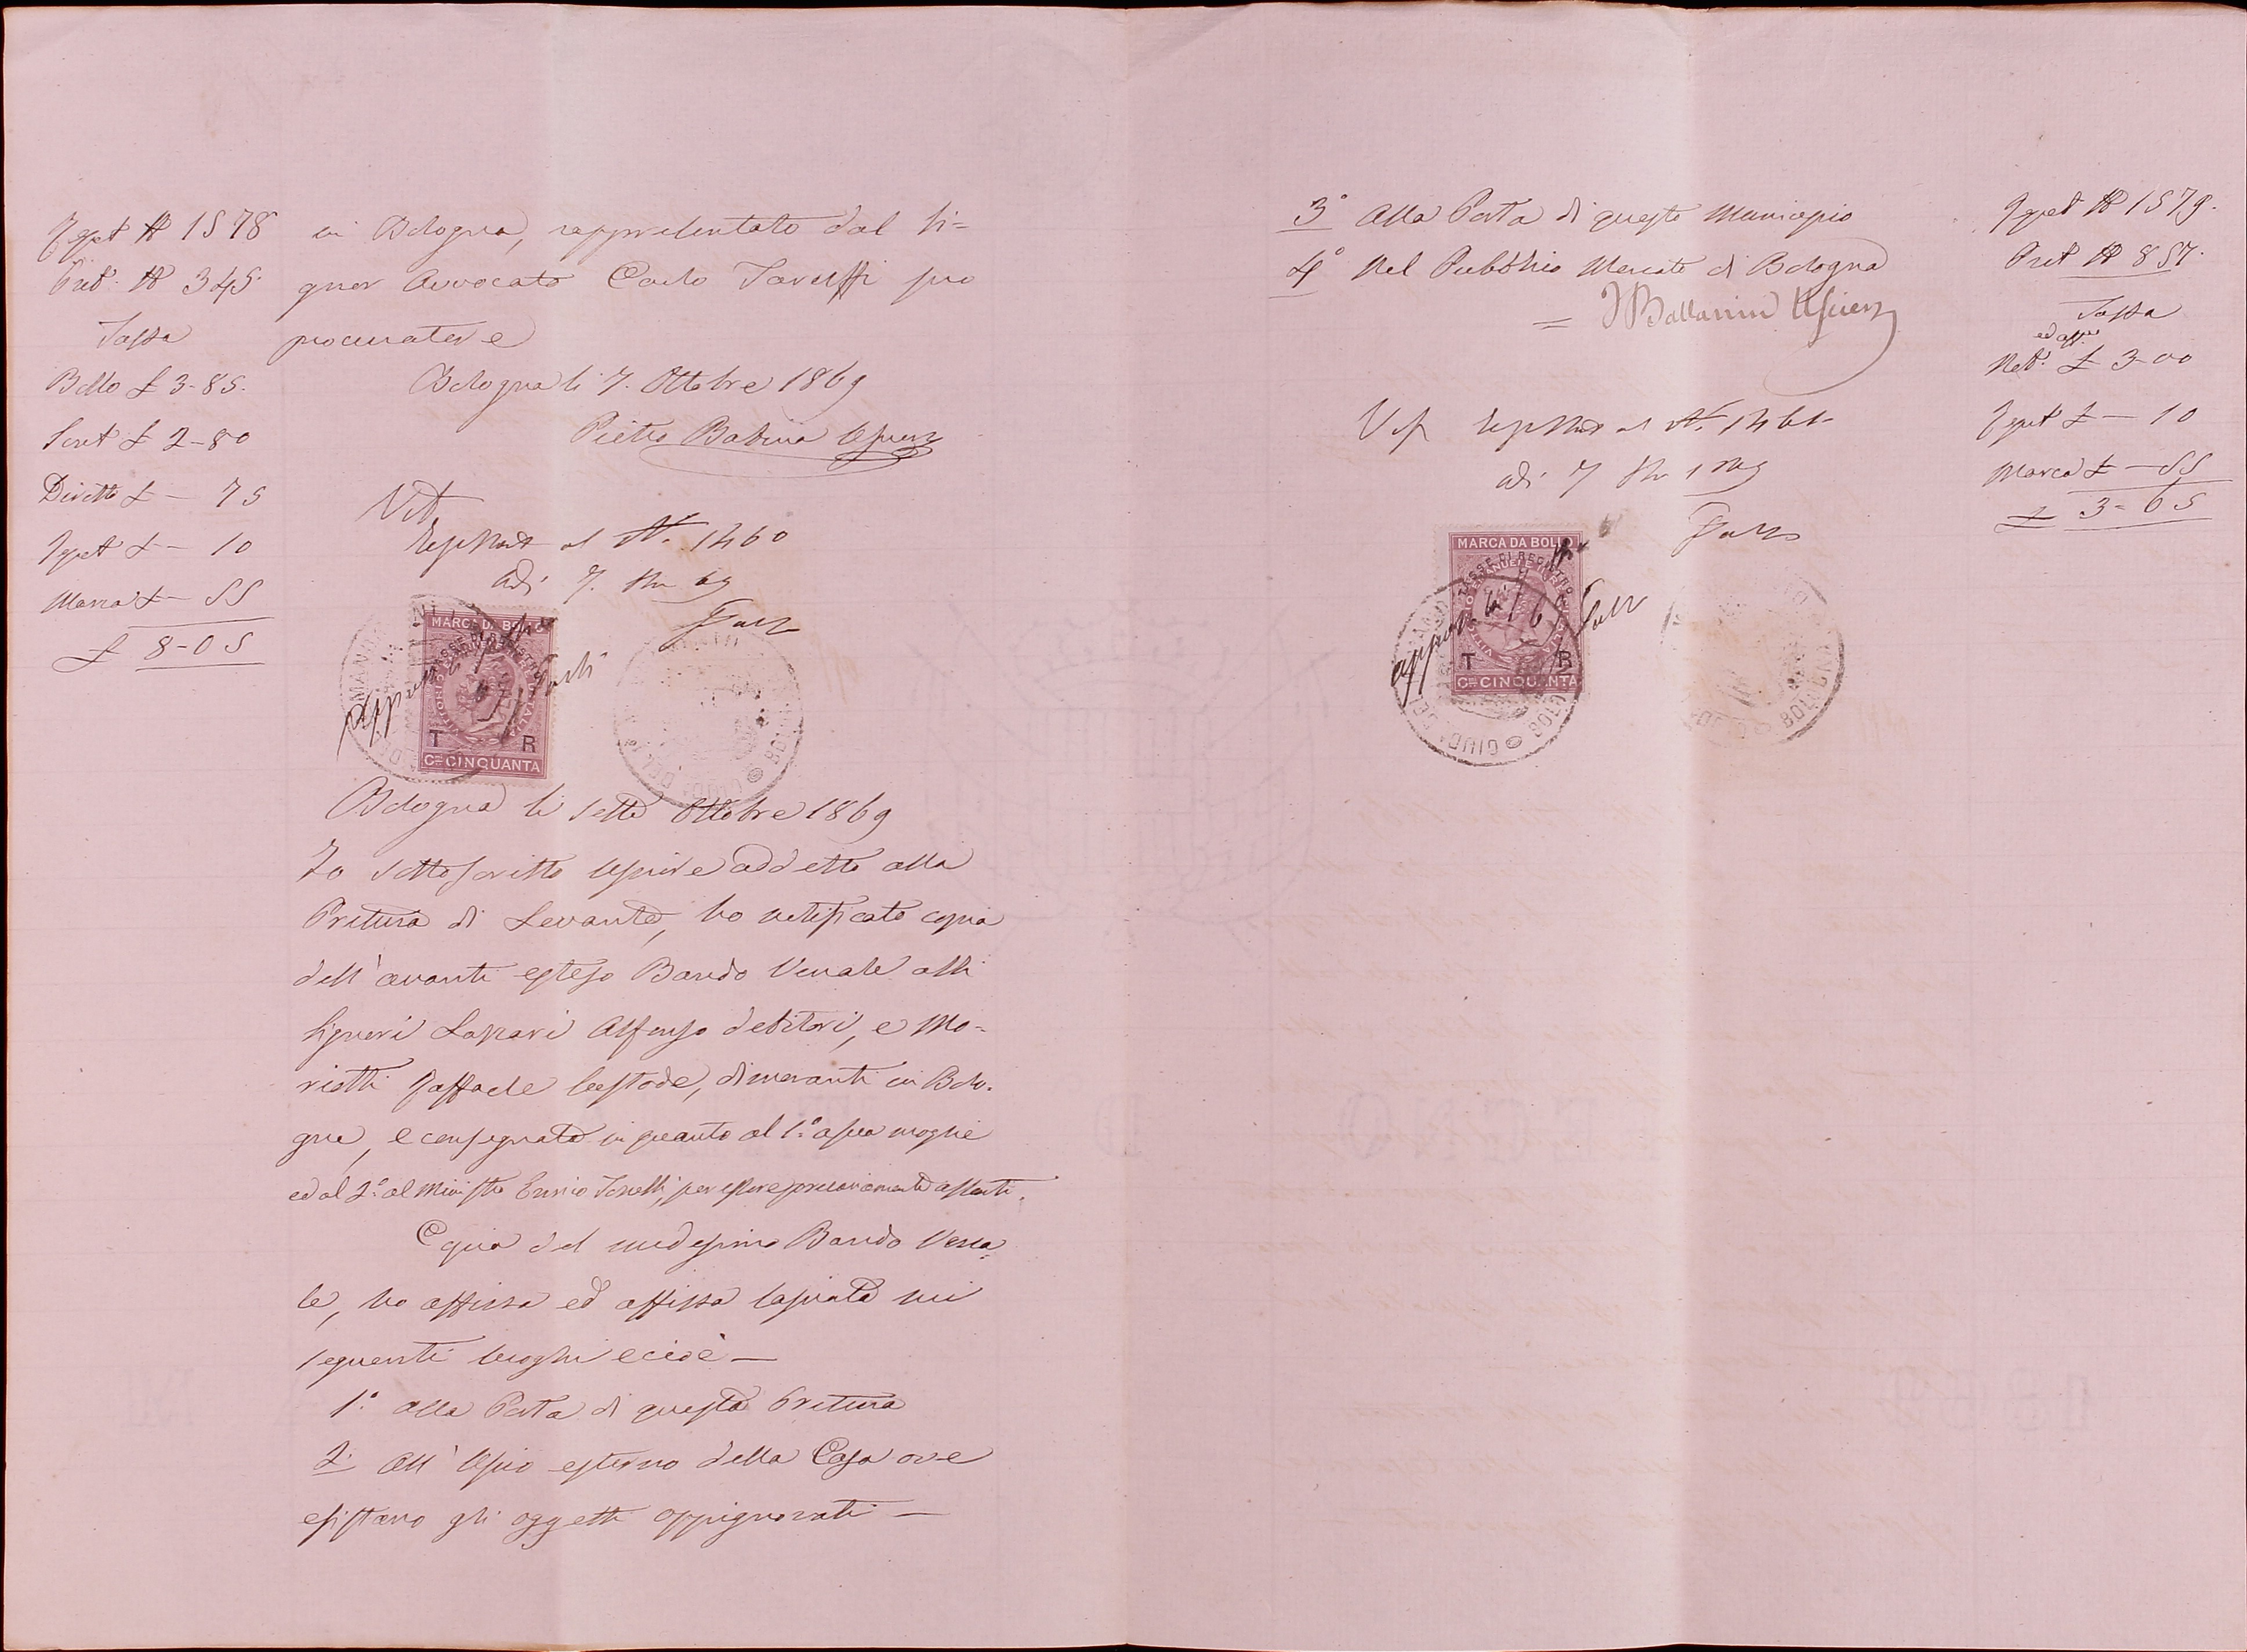 Repet N 1578
Prot. N 345
Tassa
Bollo £ 3-85.
Scrit £ 2-80
Diritto £ — 75
Repet £ — 10
Marca £ — 55
£ 8-05
in Bologna, rappresentato dal Si=
gnor Avvocato Carlo Taruffi suo
procuratore
Bologna li 7. Ottobre 1869
Pietro Babina Usciere
Vist
al N. 1460
adi 7. 69
MARCA DA BOLLO
TASSE DI REGISTRO
T R
Cmi CINQUANTA
BOLOGNA
Bologna li sette Ottobre 1869
Io sottoscritto Usciere addetto alla
Pretura di Levante, ho notificato copia
dell'avanti esteso Bando Venale alli
Signori Lazzari Alfonso debitori, e Ma-
riotti Raffaele Custode, dimoranti in Bolo-
gna, e consegnata in quanto al 1.° a sua moglie
ed al 2.° al Ministro Enrico Tonelli, per essere precariamente assenti.
Copia del medesimo Bando Vena=
le, ho affissa ed affissa lasciata nei
seguenti luoghi e cioè —
1.° alla Porta di questa Pretura
2.° All'Uscio esterno della Casa ove
esistano gli oggetti oppignorati —
3° Alla Porta di questo Municipio
4° Nel Pubblico Mercato di Bologna
= Ballarini Usciere
al N. 1461
adi 7
MARCA DA BOLLO
TASSE DI REGISTRO
T R
Cmi CINQUANTA
BOLOGNA
Repet N 1579.
Prot N 857.
Tassa
ed affis
Not. £ 3-00
Repet £ — 10
Marca £ — 55
£ 3-65